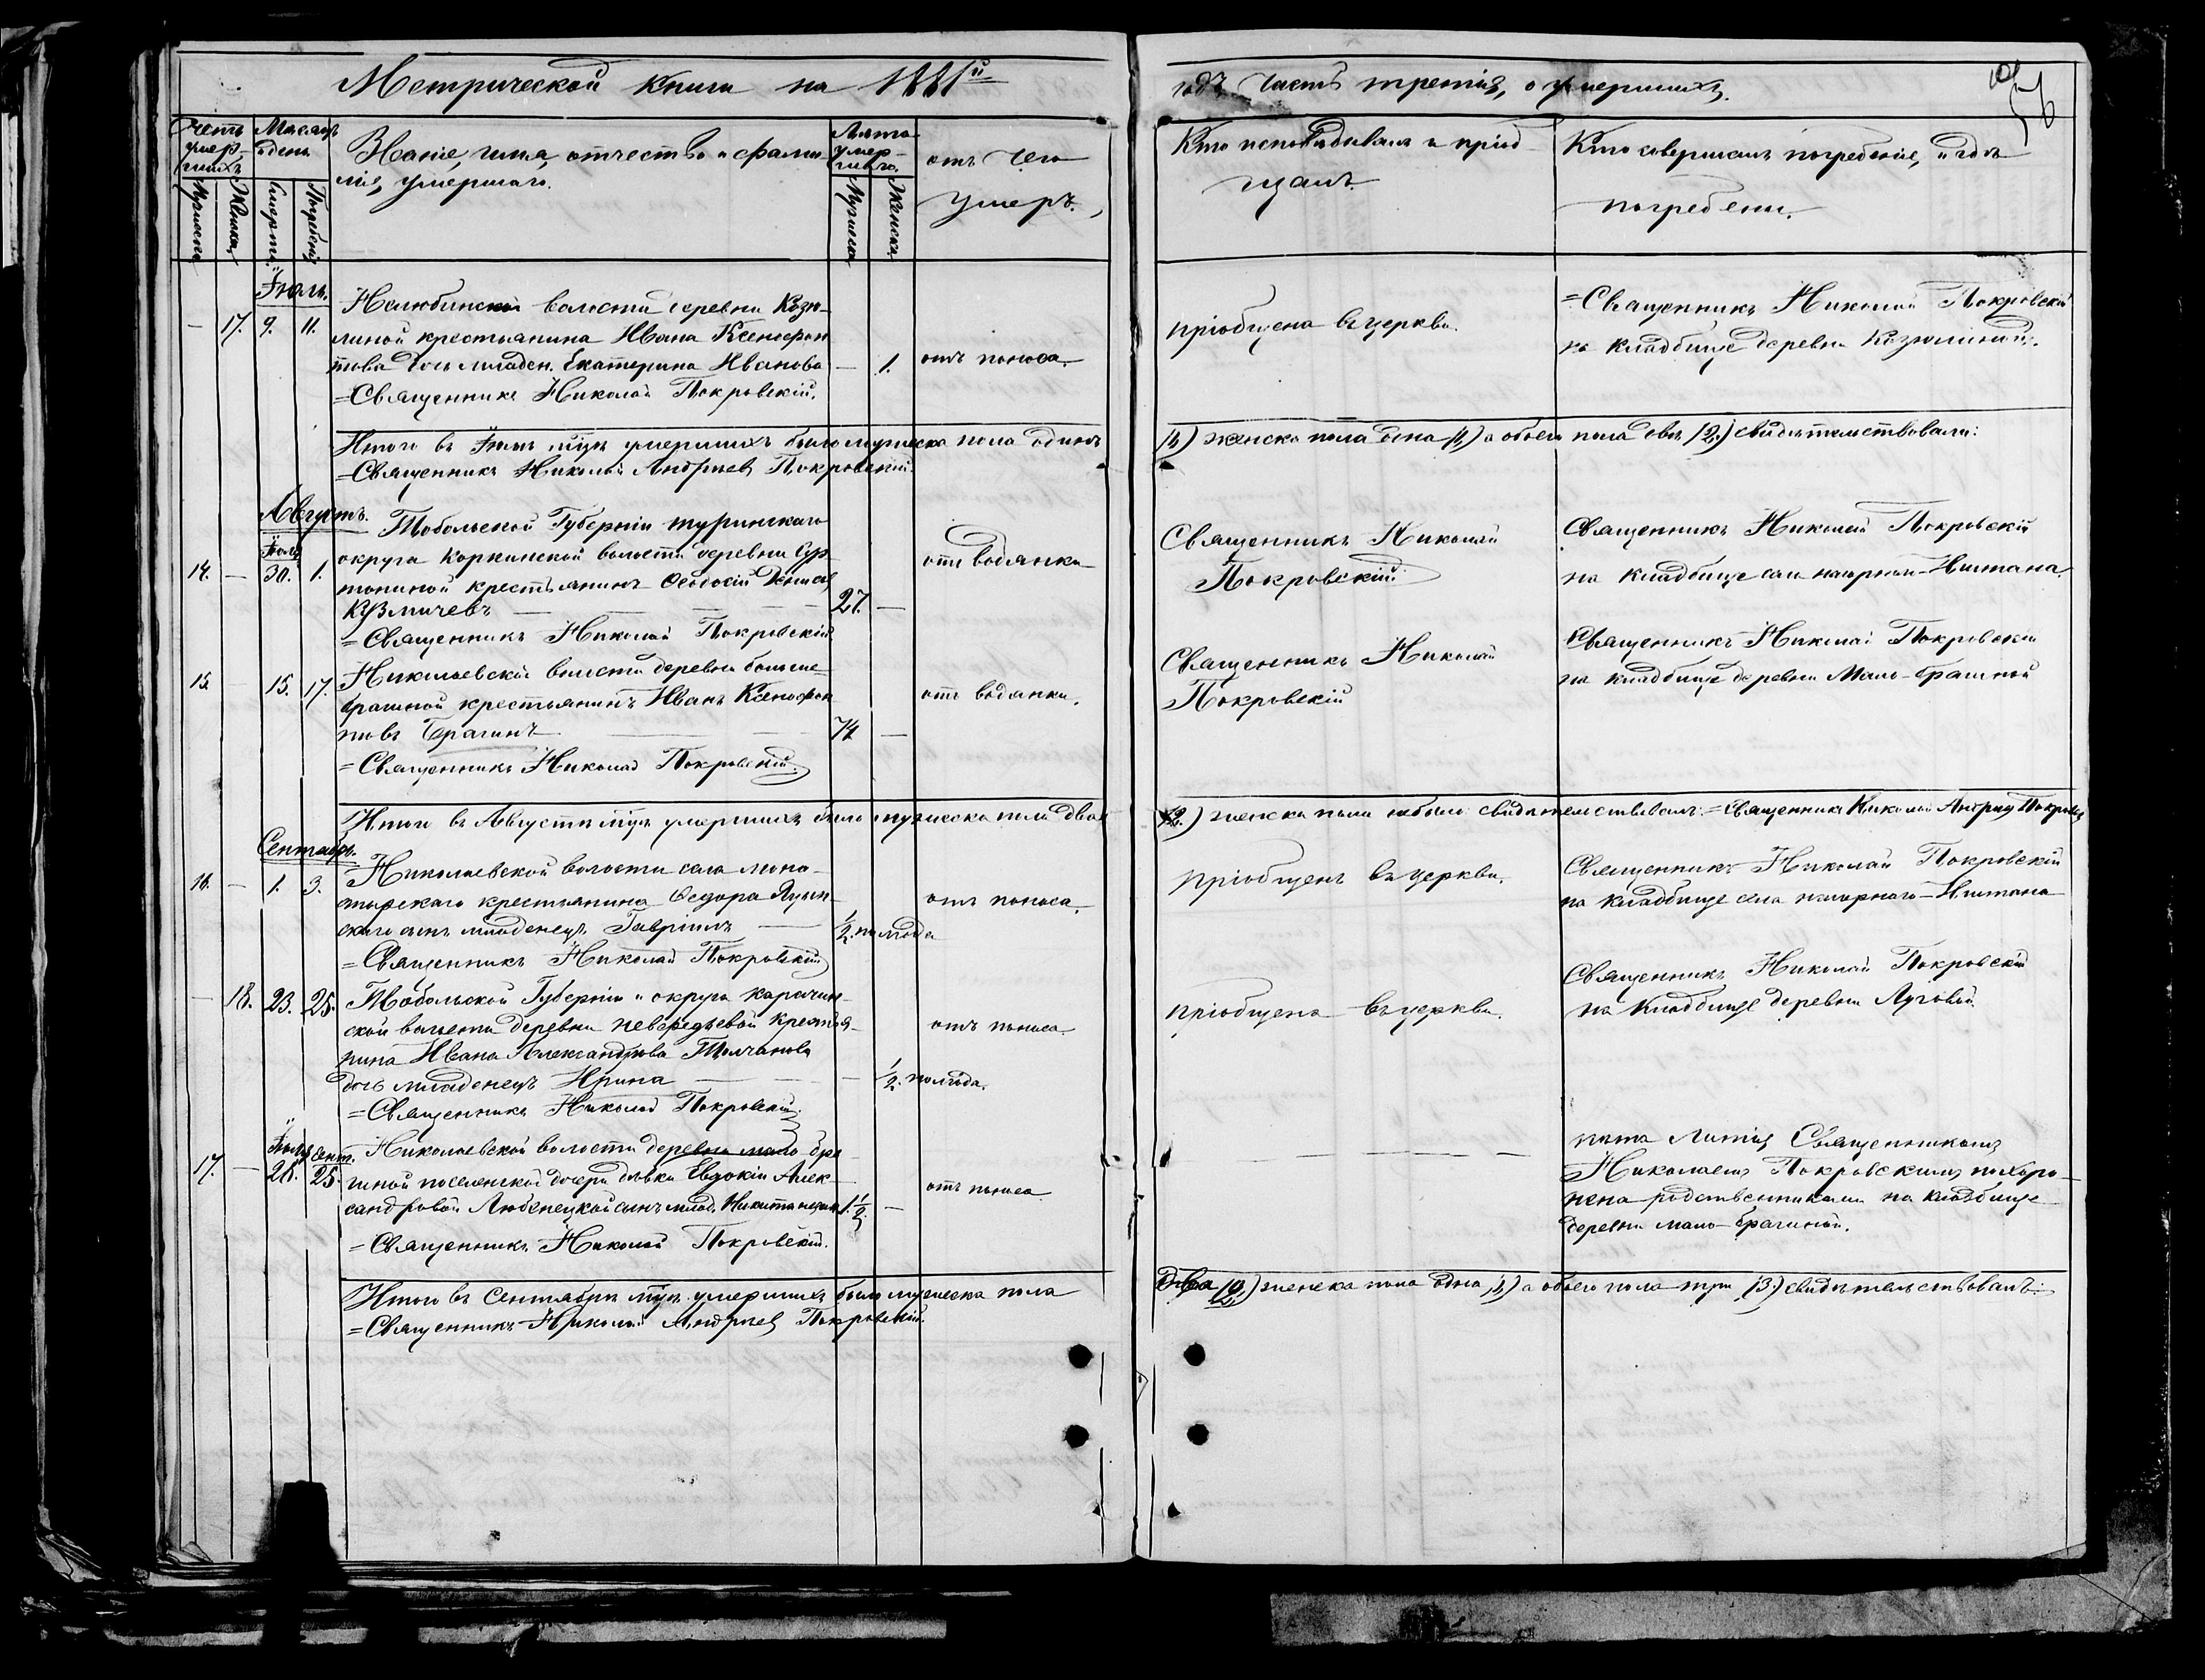 Метрической книги на 1881й
годъ часть третія, о умершихъ.
Счетъ умер-шихъ
Мужеска
Женска
Мѣсяцъ и день
Смерти.
Погребенія
Званіе, имя, отчество и фами-
лія, умершаго.
Лѣта умер-шаго.
Мужеска
Женска
отъ чего
умеръ.
Кто исповѣдывалъ и пріоб-
щалъ.
Кто совершалъ погребеніе, и гдѣ
погребены.
Іюль.
— 17. 9. 11.
Нелюбинской волости деревни Козю-
линой крестьянина Ивана Ксенофон
това дочь младен. Екатерина Иванова — 1. отъ поноса.
=Священникъ Николай Покровскій.
пріобщена въ церкви.
=Священникъ Николай Покровскій
на кладбище деревни Козюлиной.
Итого въ Іюлѣ мѣцѣ умершихъ было мужеска пола одинъ
(1.) женска пола одна (1.) а обоего пола два (2.) свидѣтельствовали:
=Священникъ Николай Андреевъ Покровскій.
Августъ.
Іюля
14. — 30. 1.
Тобольской Губерніи туринскаго
округа Коркинской волости деревни
крестьянинъ Ѳеодосій Денисовъ
Кузмичевъ — — — 27. —
=Священникъ Николай Покровскій
отъ водянки
Священникъ Николай
Покровскій
Священникъ Николай Покровскій
на кладбище села нагорнаго-Иштана.
15. — 15. 17.
Николаевской волости деревни больше-
брагиной крестьянинъ Иванъ Ксенофон
товъ Брагинъ — — 74 —
=Священникъ Николай Покровскій.
отъ водянки.
Священникъ Николай
Покровскій
Священникъ Николай Покровскій
на кладбище деревни Мало-брагиной
Итого въ Августѣ мѣцѣ умершихъ было мужеска пола двои
(2.) женска пола небыло: свидѣтельствовалъ: =Священникъ Николай Андреевъ Покровскій
Сентябрь.
16. — 1. 3.
Николаевской волости села мона-
тырскаго крестьянина Ѳедора
скаго сынъ младенецъ Гавріилъ — 1/2. полгода
=Священникъ Николай Покровскій
отъ поноса.
пріобщенъ въ церкви.
Священникъ Николай Покровскій
на кладбище села нагорнаго-Иштана
— 18. 23. 25.
Тобольской Губерніи и округа карачин-
ской волости деревни невередьевой крестья-
нина Ивана Александрова Толчанова
дочь младенецъ Ирина — — 1/2. полгода.
=Священникъ Николай Покровскій.
отъ поноса.
пріобщена въ церкви.
Священникъ Николай Покровскій
на кладбище деревни Луговой.
Іюля Сент.
17. — 28. 25.
Николаевской волости деревни мало-бра
гиной поселенской дочери дѣвки Евдокіи Алек-
сандровой Любенецкой сынъ млад. Никита 1 1/2. —
=Священникъ Николай Покровскій.
отъ поноса
— — — —
пѣта Литія Священникомъ
Николаемъ Покровскимъ похоро-
нена родственниками на кладбище
деревни мало-брагиной.
Итого въ Сентябрѣ мѣцѣ умершихъ было мужеска пола
два (2.) женска пола одна (1.) а обоего пола три (3.) свидѣтельствовалъ:
=Священникъ Николай Андреевъ Покровскій.